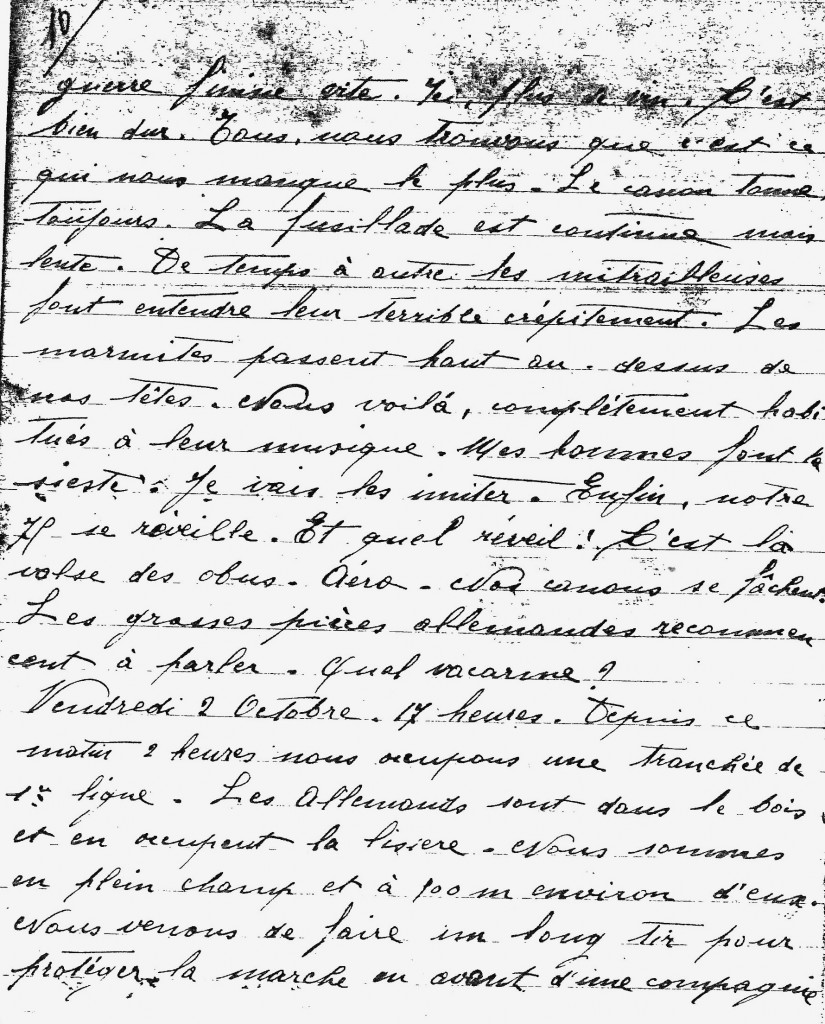 10
guerre finisse vite. Ici, plus de vin. C'est
bien dur. Tous, nous trouvons que c'est ce
qui nous manque le plus. Le canon tonne,
toujours. La fusillade est continue mais
lente. De temps à autre les mitrailleuses
font entendre leur terrible crépitement. Les
marmites passent haut au-dessus de
nos têtes. Nous voilà, complètement habi
tués à leur musique. Mes hommes font la
sieste. Je vais les imiter. Enfin, notre
75 se réveille. Et quel réveil! C'est la
valse des obus. Aéro. Nos canons se fâchent.
Les grosses pièces allemandes recommen
cent à parler. Quel vacarme?
Vendredi 2 Octobre. 17 heures. Depuis ce
matin 2 heures nous occupons une tranchée de
1re ligne. Les Allemands sont dans le bois
et en occupent la lisière. Nous sommes
en plein champ et à m environ d'eux.
Nous venons de faire un long tir pour
protéger la marche en avant d'une compagnie